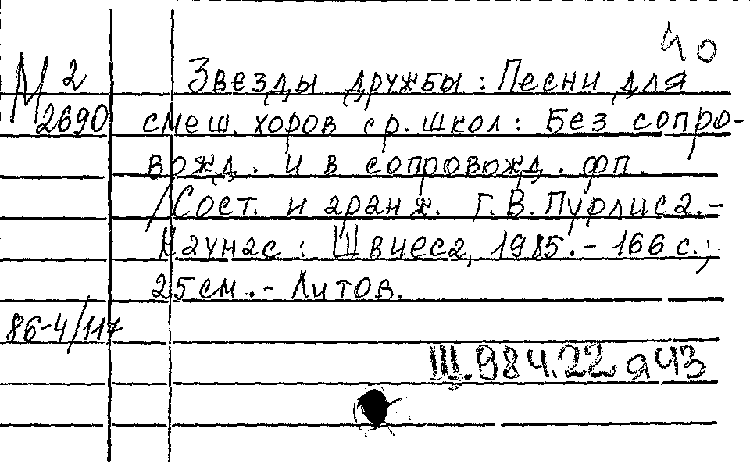 40
М 2
2690
Звезды дружбы: Песни для
смеш. хоров ср. школ: Без сопро-
вожд. и в сопровожд. фп.
/Сост. и аранж. Г. В. Пурлиса.-
Каунас: Швиеса, 1985.- 166 с.;
25 см.- Литов.
86-4/117
III.984.22 я43